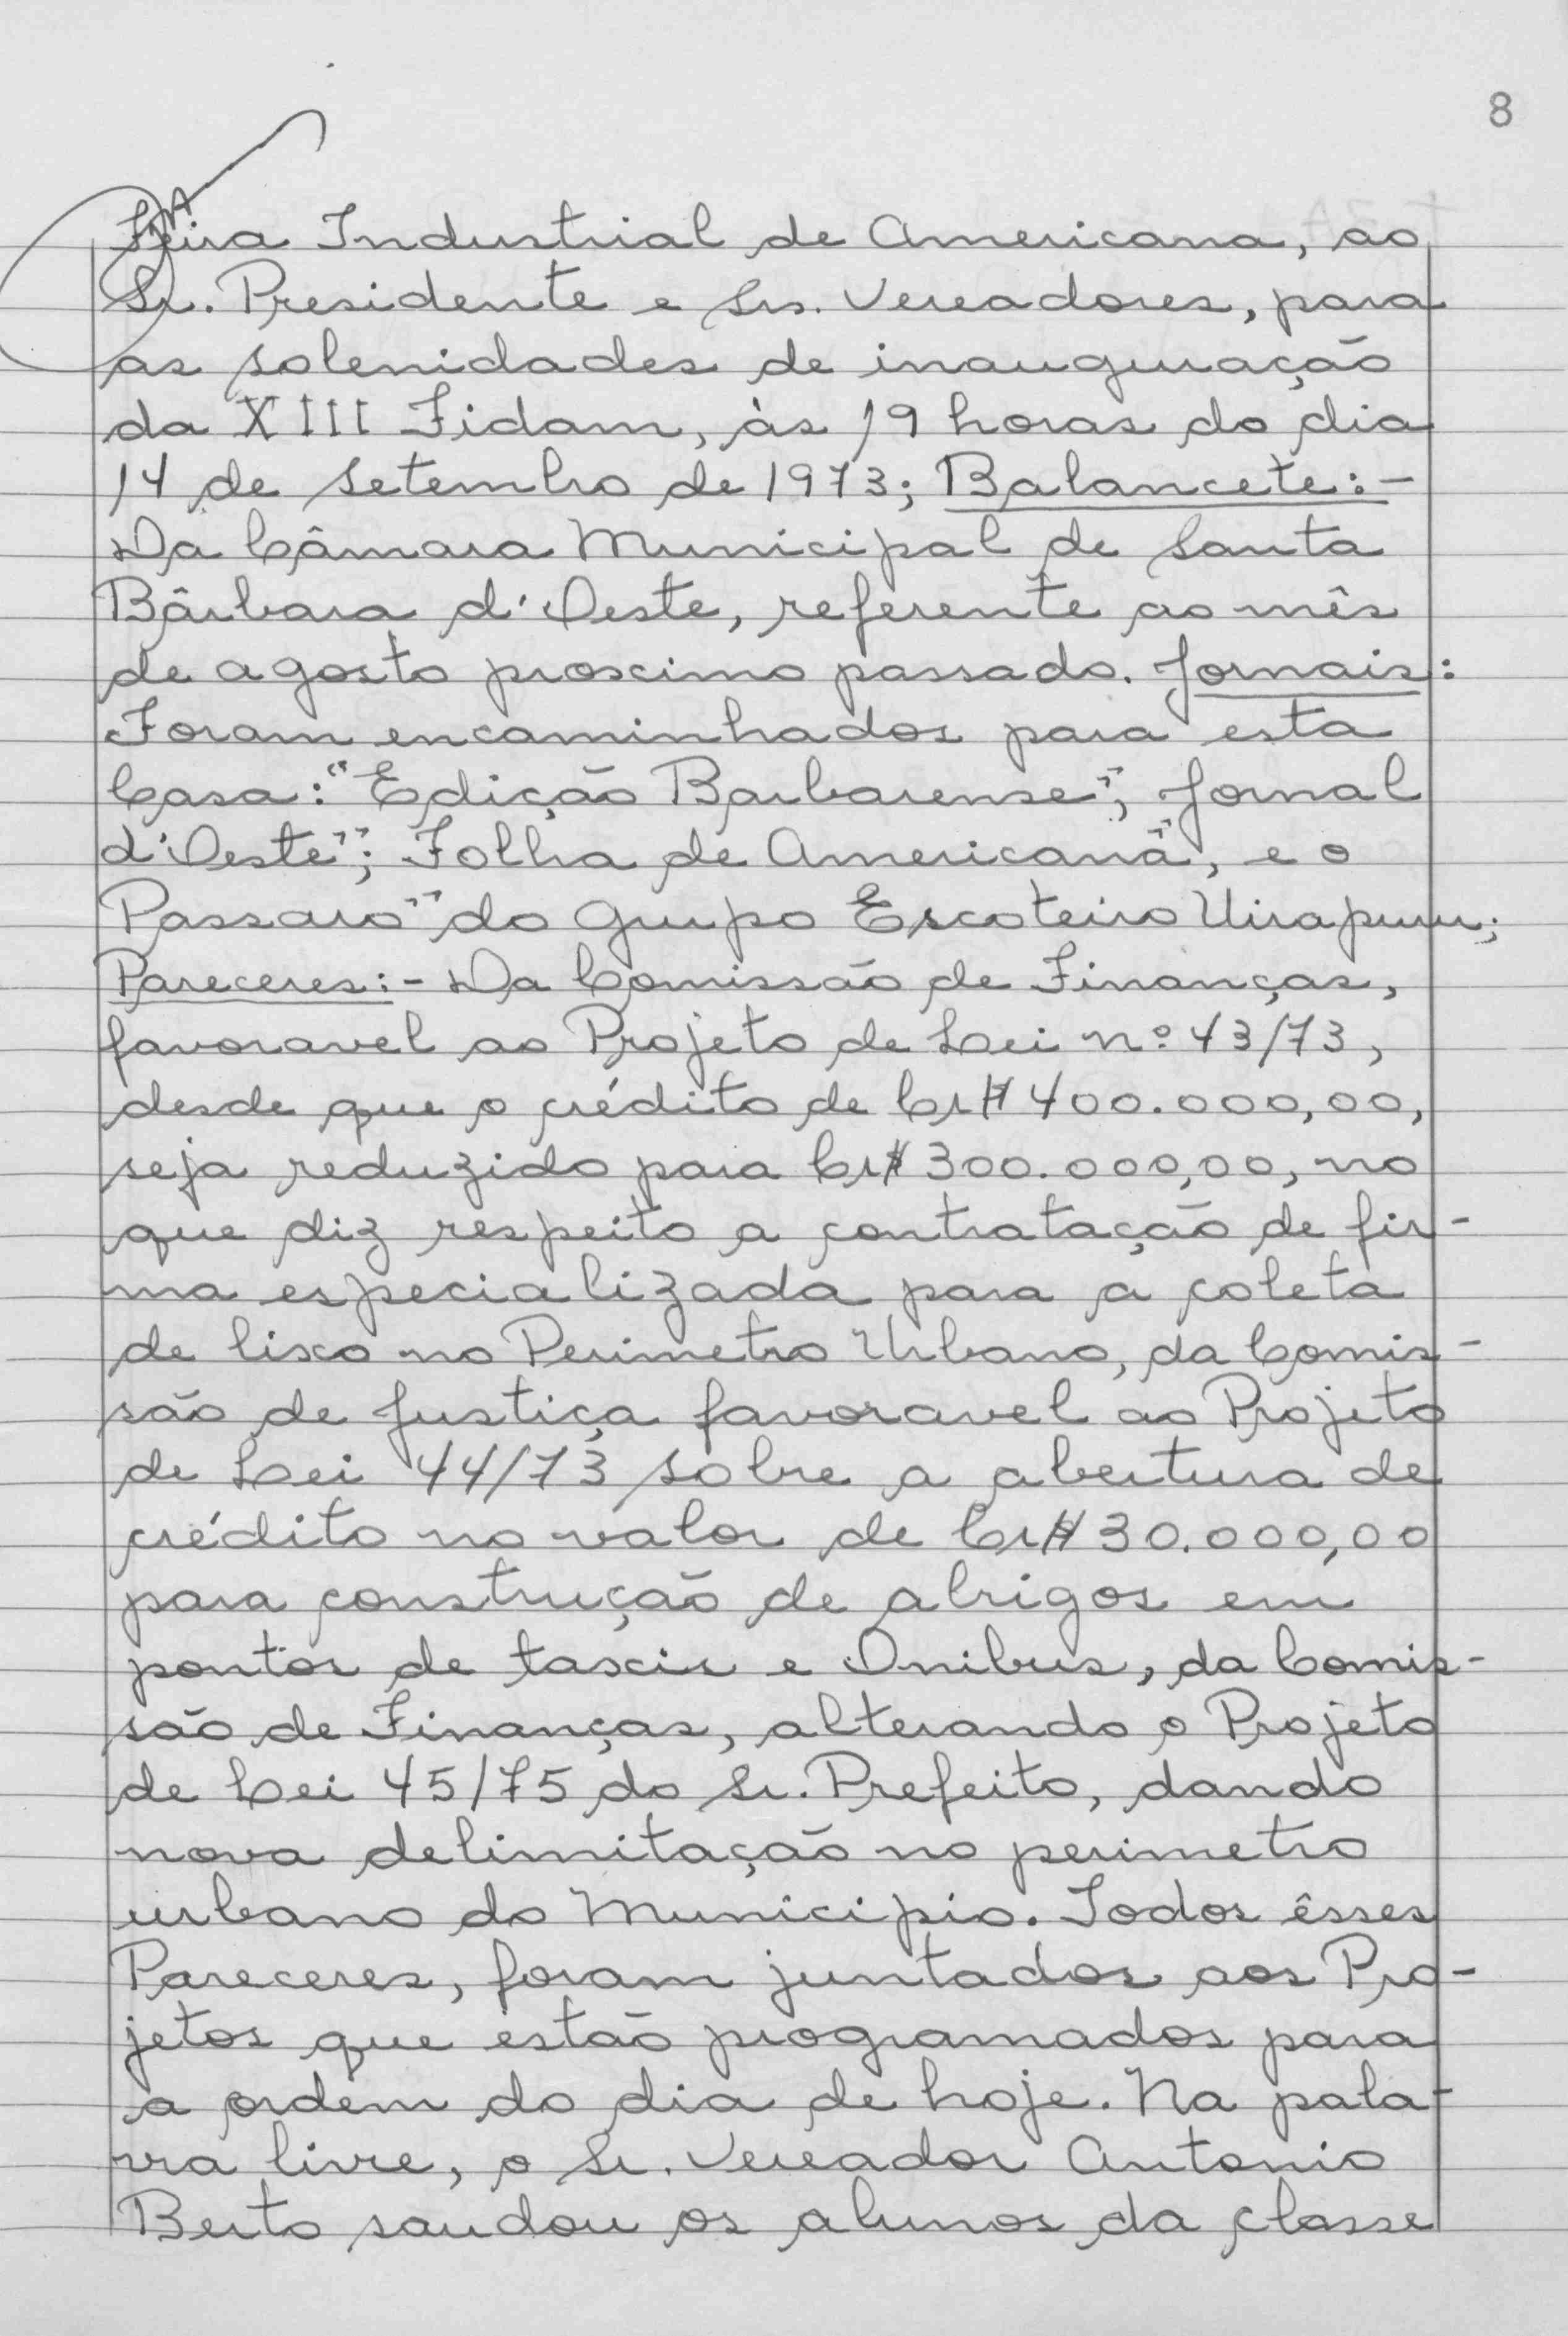 8
Feira Industrial de Americana, ao
Sr. Presidente e Srs. Vereadores, para
as solenidades de inauguração
da XIII Fidam, às 19 horas do dia
14 de setembro de 1973; Balancete:-
Da Câmara Municipal de Santa
Bârbara d'Oeste, referente ao mês
de agosto proximo passado. Jornais:
Foram encaminhados para esta
Casa: "Edição Barbarense"; Jornal
d'Oeste"; Folha de Americana", e o
Passaro" do Grupo Escoteiro Uirapuru;
Pareceres:- Da Comissão de Finanças,
favoravel ao Projeto de Lei nº 43/73,
desde que o crédito de Cr$ 400.000,00,
seja reduzido para Cr$ 300.000,00, no
que diz respeito a contratação de fir-
ma especializada para a coleta
de lixo no Perimetro Urbano, da Comis-
são de Justiça favoravel ao Projeto
de Lei 44/73 sobre a abertura de
crédito no valor de Cr$ 30.000,00
para construção de abrigos em
pontos de taxis e Onibus, da Comis-
são de Finanças, alterando o Projeto
de Lei 45/75 do Sr. Prefeito, dando
nova delimitação no perimetro
urbano do Municipio. Todos êsses
Pareceres, foram juntados aos Pro-
jetos que estão programados para
a ordem do dia de hoje. Na pala-
vra livre, o Sr. Vereador Antonio
Berto saudou os alunos da classe